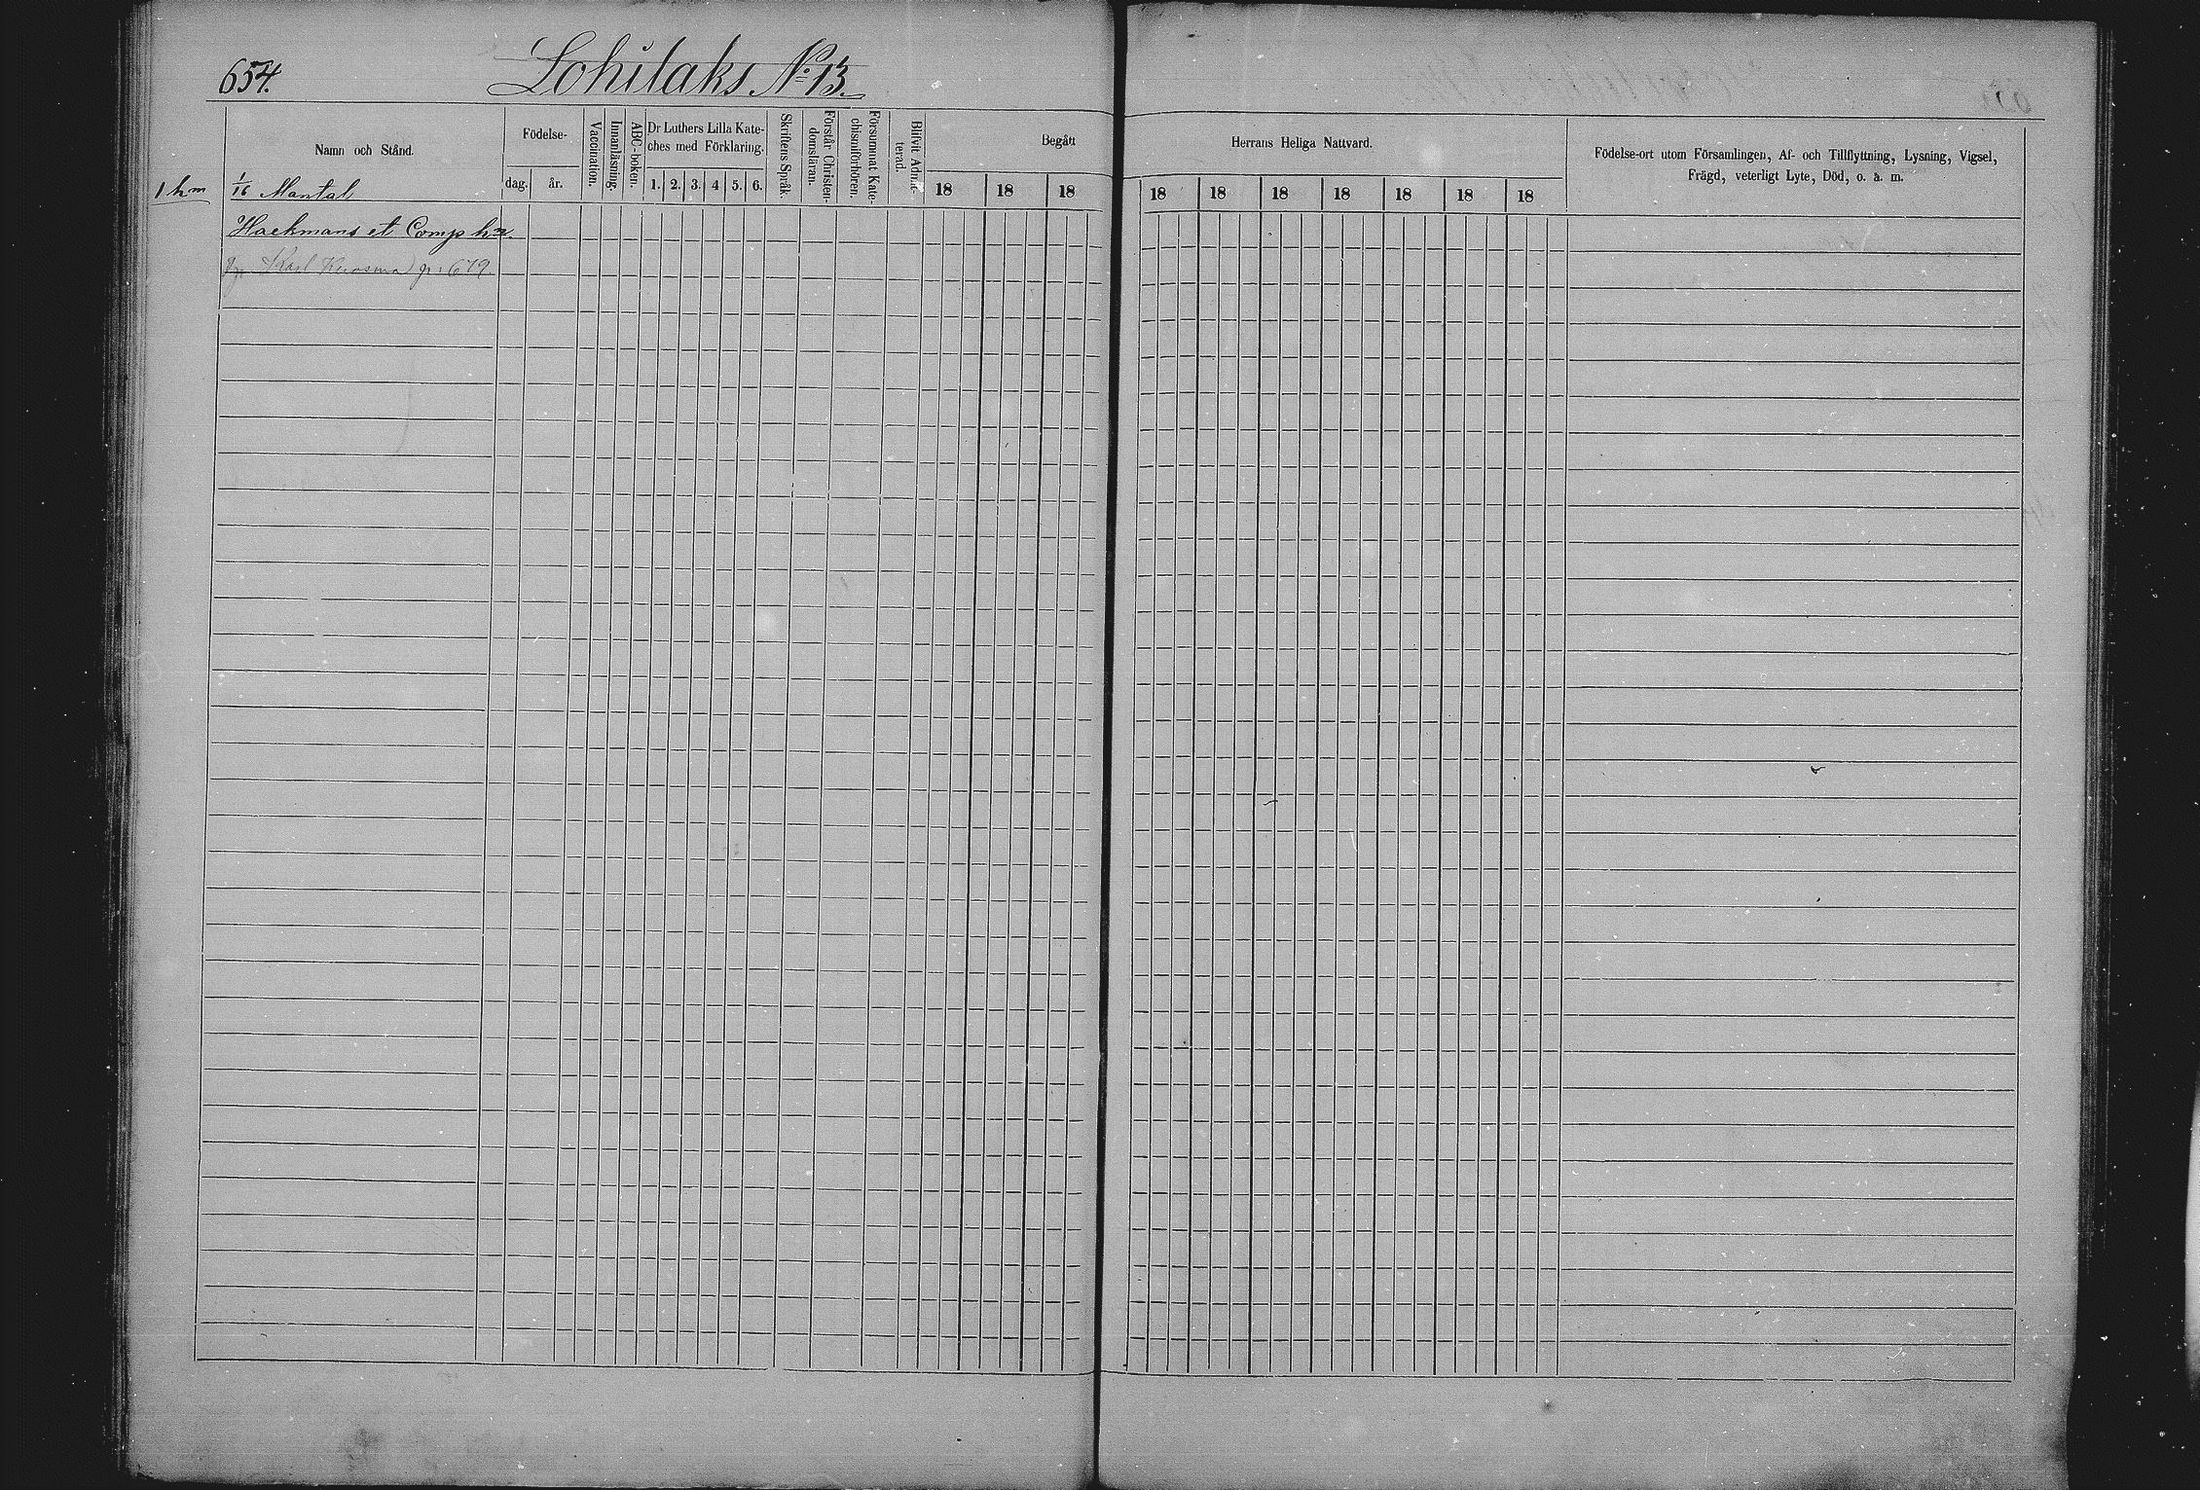 654.
Lohilaks No 13.
Namn och Stånd.
Födelse-
dag.
år.
Vaccination.
Innanläsning.
ABC-boken.
Dr Luthers Lilla Kate-
ches med Förklaring.
1. 2. 3. 4 5. 6.
Skriftens Språk.
Förstår Christen-
domsläran.
Försummat Kate-
chismiförhören.
Blifvit Admit-
terad.
Begått
18 18 18
Herrans Heliga Nattvard.
18 18 18 18 18 18 18
Födelse-ort utom Församlingen, Af- och Tillflyttning, Lysning, Vigsel,
Frägd, veterligt Lyte, Död, o. s. m.
1 hm
1/16 Mantal
Hackmans et Comp hm.
Karl Kuosma p: 679